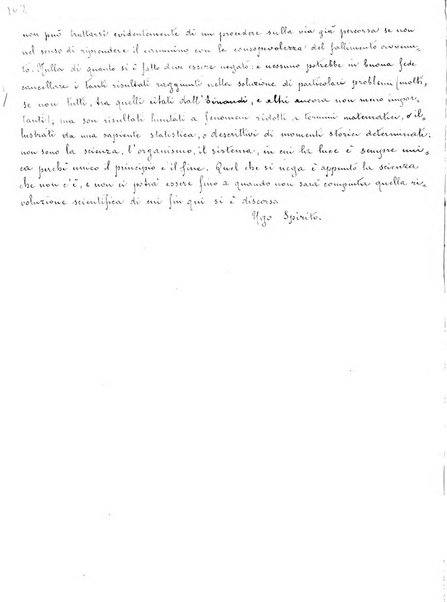 102
non può trattarsi evidentemente di un procedere sulla via già percorsa se non
nel senso di riprendere il cammino con la consapevolezza del fallimento avvenu-
to. Nulla di quanto si è fatto deve essere negato: e nessuno potrebbe in buona fede
cancellare i tanti risultati raggiunti nella soluzione di particolari problemi (molti,
se non tutti, tra quelli citati dall'Einaudi, e altri ancora non meno impor-
tanti), ma son risultati limitati a fenomeni ridotti a termini matematici, o il-
lustrati da una sapiente statistica, o descrittivi di momenti storici determinati:
non sono la scienza, l'organismo, il sistema, in cui la luce è sempre uni-
ca perchè unico il principio e il fine. Quel che si nega è appunto la scienza
che non c'è, e non ci potrà essere fino a quando non sarà compiuta quella ri-
voluzione scientifica di cui fin qui si è discorso.
Ugo Spirito.